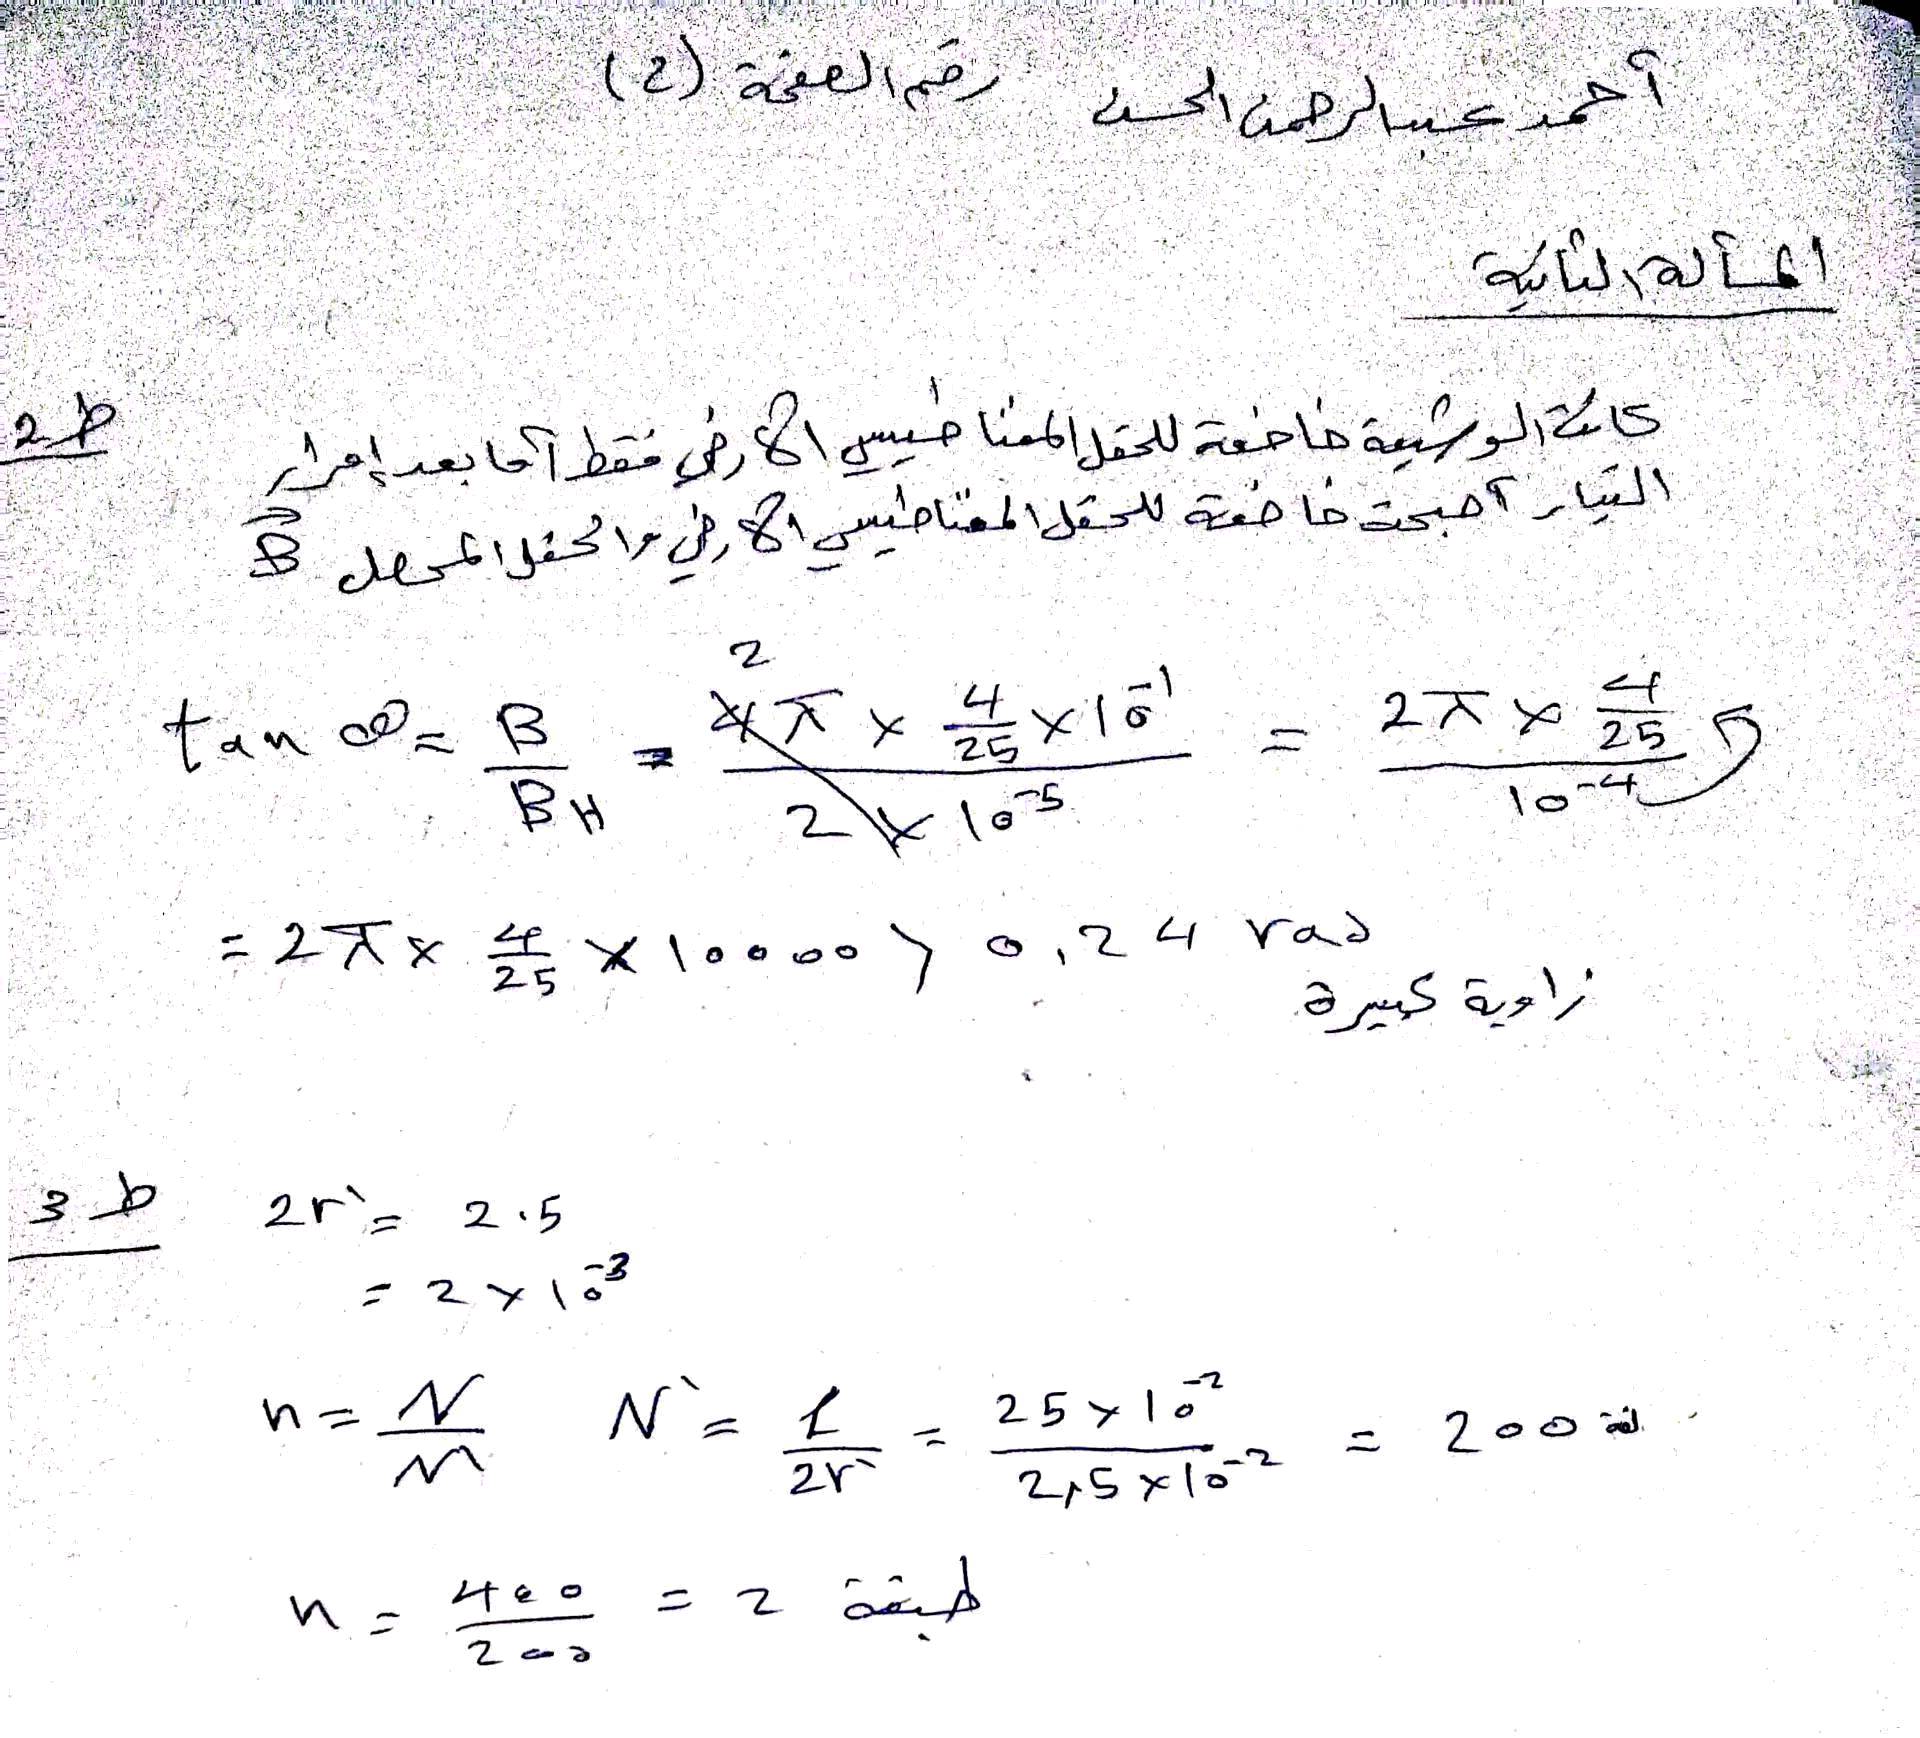 أحمد عبدالرحمن الحسن رقم الصفحة (2)
المسألة الثانية
ط 2
كانت الوشيعة خاضعة للحقل المغناطيسي الأرضي فقط أما بعد إمرار
التيار أصبحت خاضعة للحقل المغناطيسي الأرضي والحقل المحصل B⃗
tan θ = B/B_H = 4π × 4/25 × 10⁻¹ / 2 × 10⁻⁵ = 2π × 4/25 / 10⁻⁴
2
= 2π × 4/25 × 10000 > 0,24 rad
زاوية كبيرة
ط 3
2r` = 2.5
= 2 × 10⁻³
n = N/N N` = l/2r` = 25 × 10⁻² / 2,5 × 10⁻² = 200 لفة
n = 400/200 = 2 طبقة